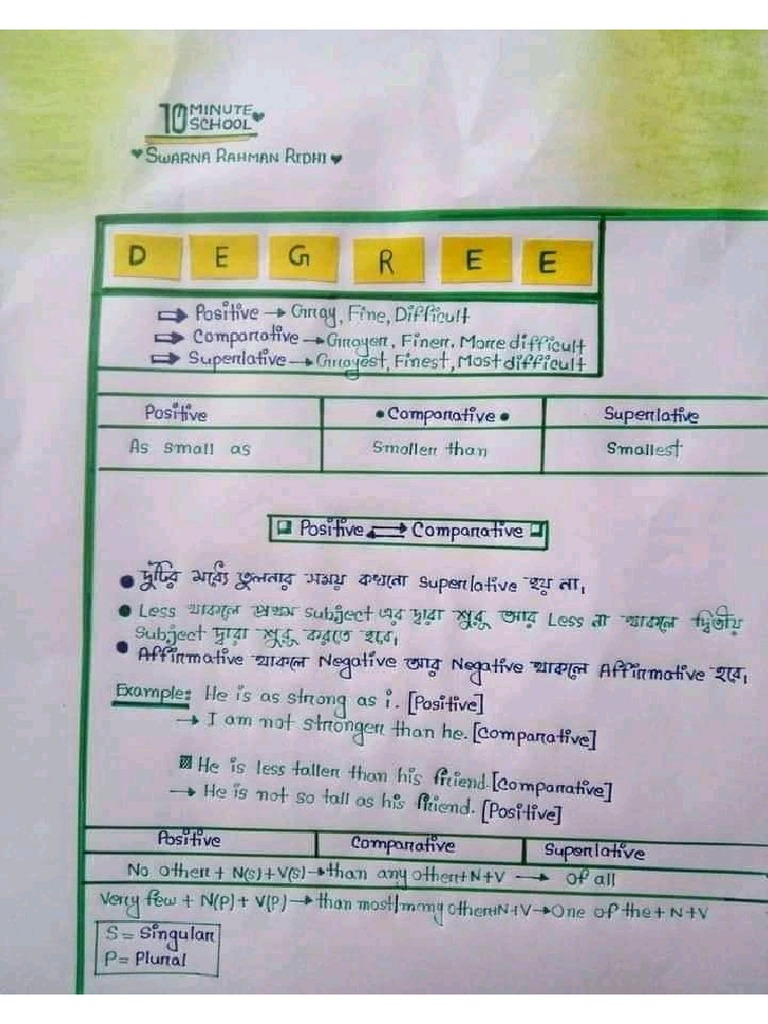 10 MINUTE SCHOOL
SWARNA RAHMAN REDHI
D E G R E E
⇒ Positive → Gray, Fine, Difficult
⇒ Comparative → Grayer, Finer, More difficult
⇒ Superlative → Grayest, Finest, Most difficult
Positive • Comparative • Superlative
As small as Smaller than Smallest
Positive ⇄ Comparative
• দুটির মধ্যে তুলনার সময় কখনো Superlative হয় না।
• Less থাকলে প্রথম subject এর দ্বারা শুরু আর Less না থাকলে দ্বিতীয়
Subject দ্বারা শুরু করতে হবে।
• Affirmative থাকলে Negative আর Negative থাকলে Affirmative হবে।
Example: He is as strong as i. [Positive]
→ I am not stronger than he. [Comparative]
He is less taller than his friend. [Comparative]
→ He is not so tall as his friend. [Positive]
Positive Comparative Superlative
No other + N(S) + V(S) → than any other + N + V → of all
Very few + N(P) + V(P) → than most/many other + N + V → One of the + N + V
S = Singular
P = Plural